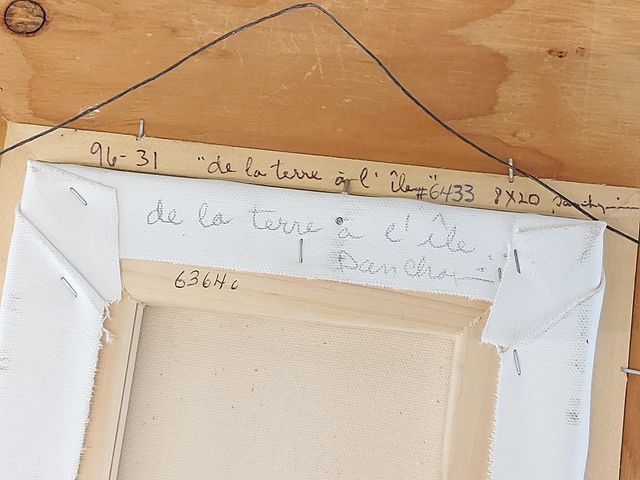 96-31 "de la terre à l'île" #6433 8X20
de la terre à l'île
636Hc